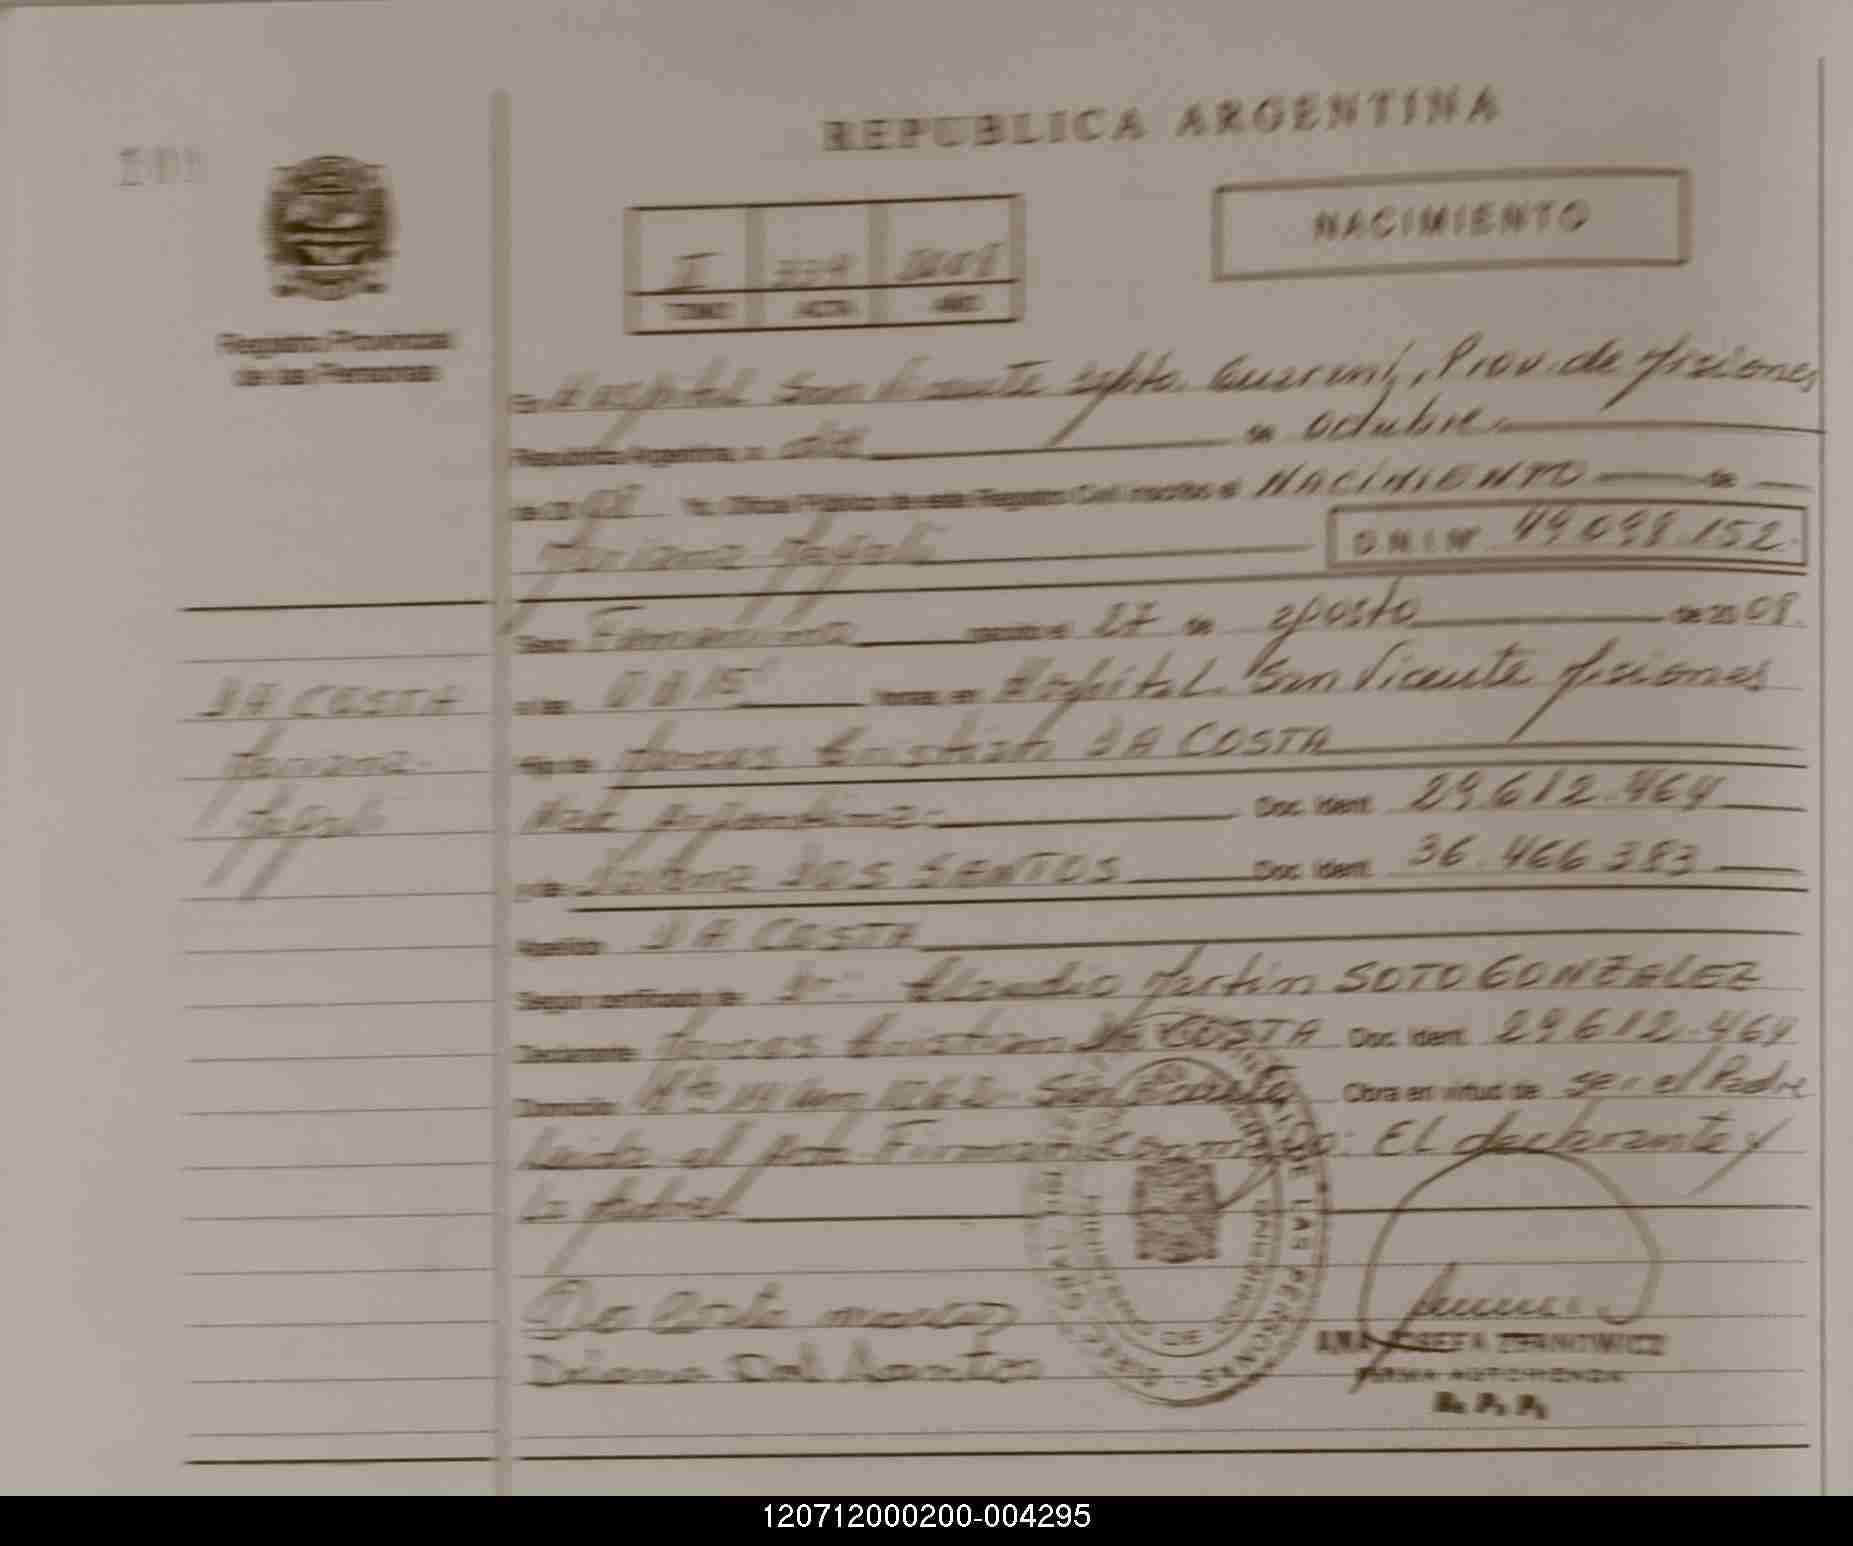 REPUBLICA ARGENTINA
NACIMIENTO
I
TOMO ACTA AÑO
Registro Provincial
de las Personas
En Hospital San Vicente Dpto. Guaraní, Prov. de Misiones
República Argentina, a de Octubre
de 20 08 Yo, Oficial Público de este Registro Civil inscribo el NACIMIENTO de
Mariana D N I Nº 49.098.152
Sexo Femenino nacido el 27 de agosto de 20 08
DA COSTA
a las 00 15 horas, en Hospital San Vicente Misiones
Mariana
Hijo de Marcos Cristian DA COSTA
Nac Argentina Doc. Ident. 29.612.464
y de DOS SANTOS Doc. Ident. 36.466.383
Apellido DA COSTA
Según certificado de Dr. Claudio Martin SOTO GONZALEZ
Declarante Marcos Cristian DA COSTA Doc. Ident. 29.612.464
Domicilio San Vicente Obra en virtud de ser el Padre
Leída el acta Firman conmigo: El declarante y
la Madre
DE LAS PERSONAS
ANA JOSEFA
FIRMA AUTORIZADA
R. P. P.
120712000200-004295